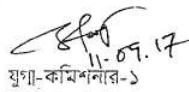 11.09.17
যুগ্ম-কমিশনার-১